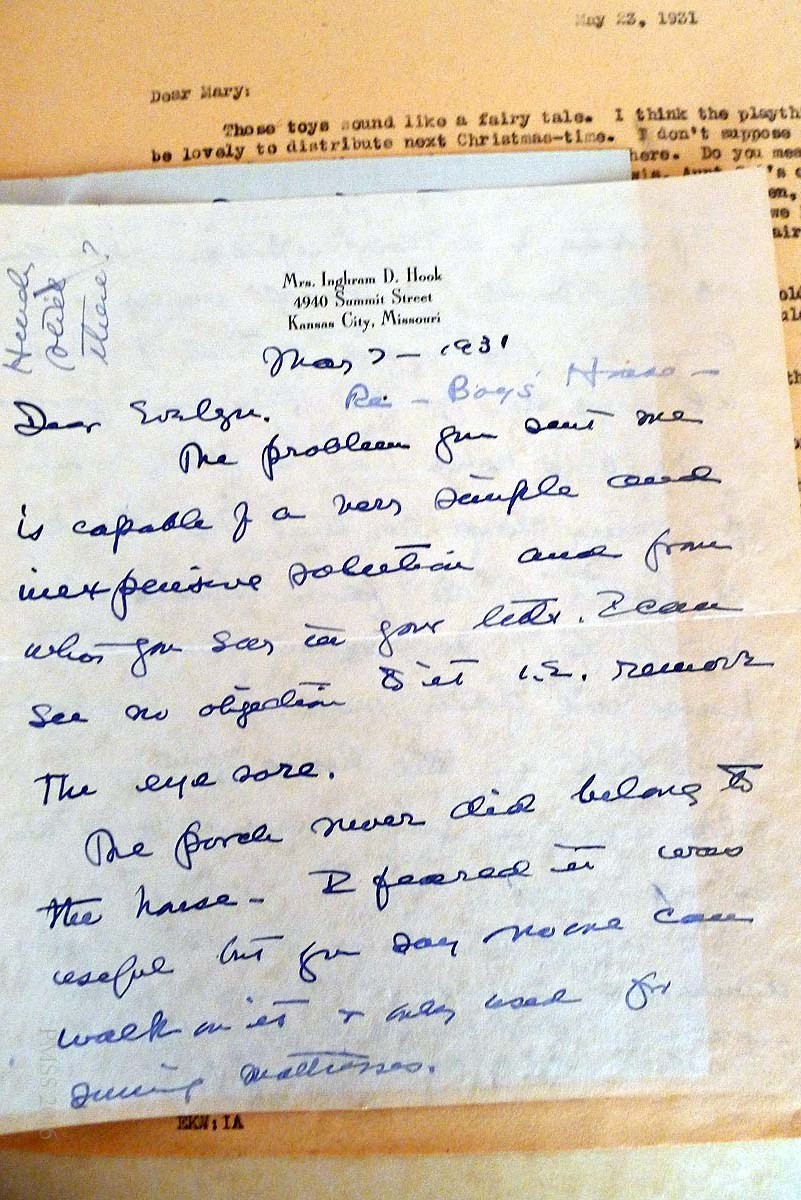 May 23, 1931
Dear Mary:
Those toys sound like a fairy tale. I think the playth
be lovely to distribute next Christmas-time. I don't suppose
here. Do you mea
Mrs. Inghram D. Hook
4940 Summit Street
Kansas City, Missouri
1931
Re - Boys' House -
Dear Evelyn.
The problem you sent me
is capable of a very simple and
inexpensive solution and from
what you say in your letter. I can
see no objection to it i.e. remove
the eye sore.
The porch never did belong to
the house - I feared it was
useful but you say no one can
walk on it & only used for
sunning mattresses.
there?
EKW:IA